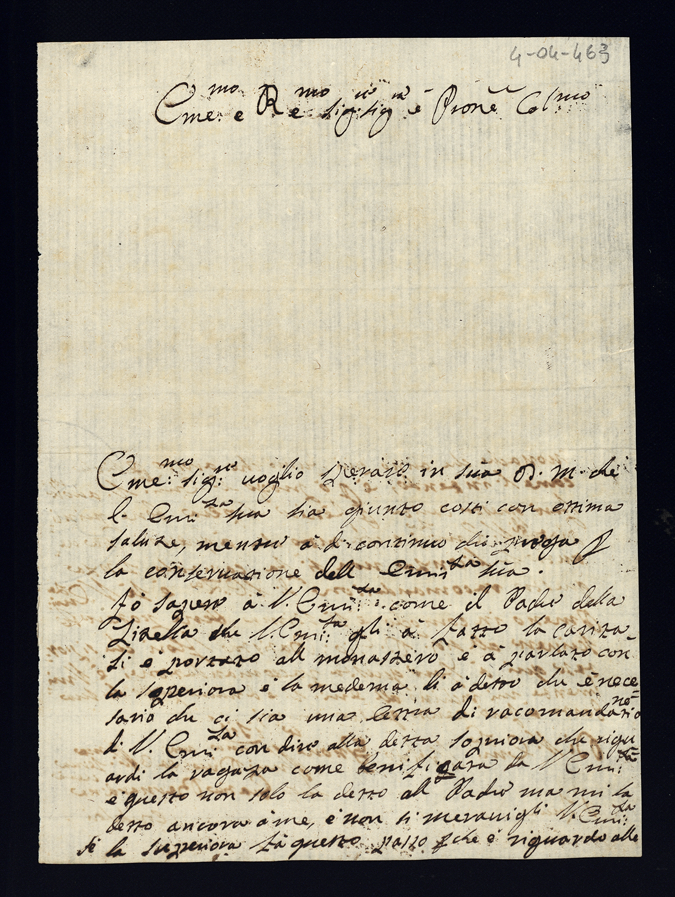 4-04-463
Eme:mo e Re:mo sig:r sig:r è Prone Colmo
Eme:mo sig:re uoglio sperare in sua D. M. che
l' Emi:za sua sia giunto costi con ottima
salute, mentre à di continuo chi prega P
la conseruatione dell Emi:za sua.
fo sapere à V. Emi:za come il Padre della
Zitella che V. Emi:za gli à fatto la carita
si è portato all monastero è à parlato con
la soperiora è la medema li à detto che è nece=
sario che ci sia una lettra di racomandatione
di V. Emi:za con dire alla detta soperiora che rigu
ardi la ragazza come benifigata da V. Emi:za
è questo non solo la detto all Padre ma mi la
detto ancora à me, è non si merauigli V. Emi:za
se la superiora fà questo passo Pche è riguardo alle